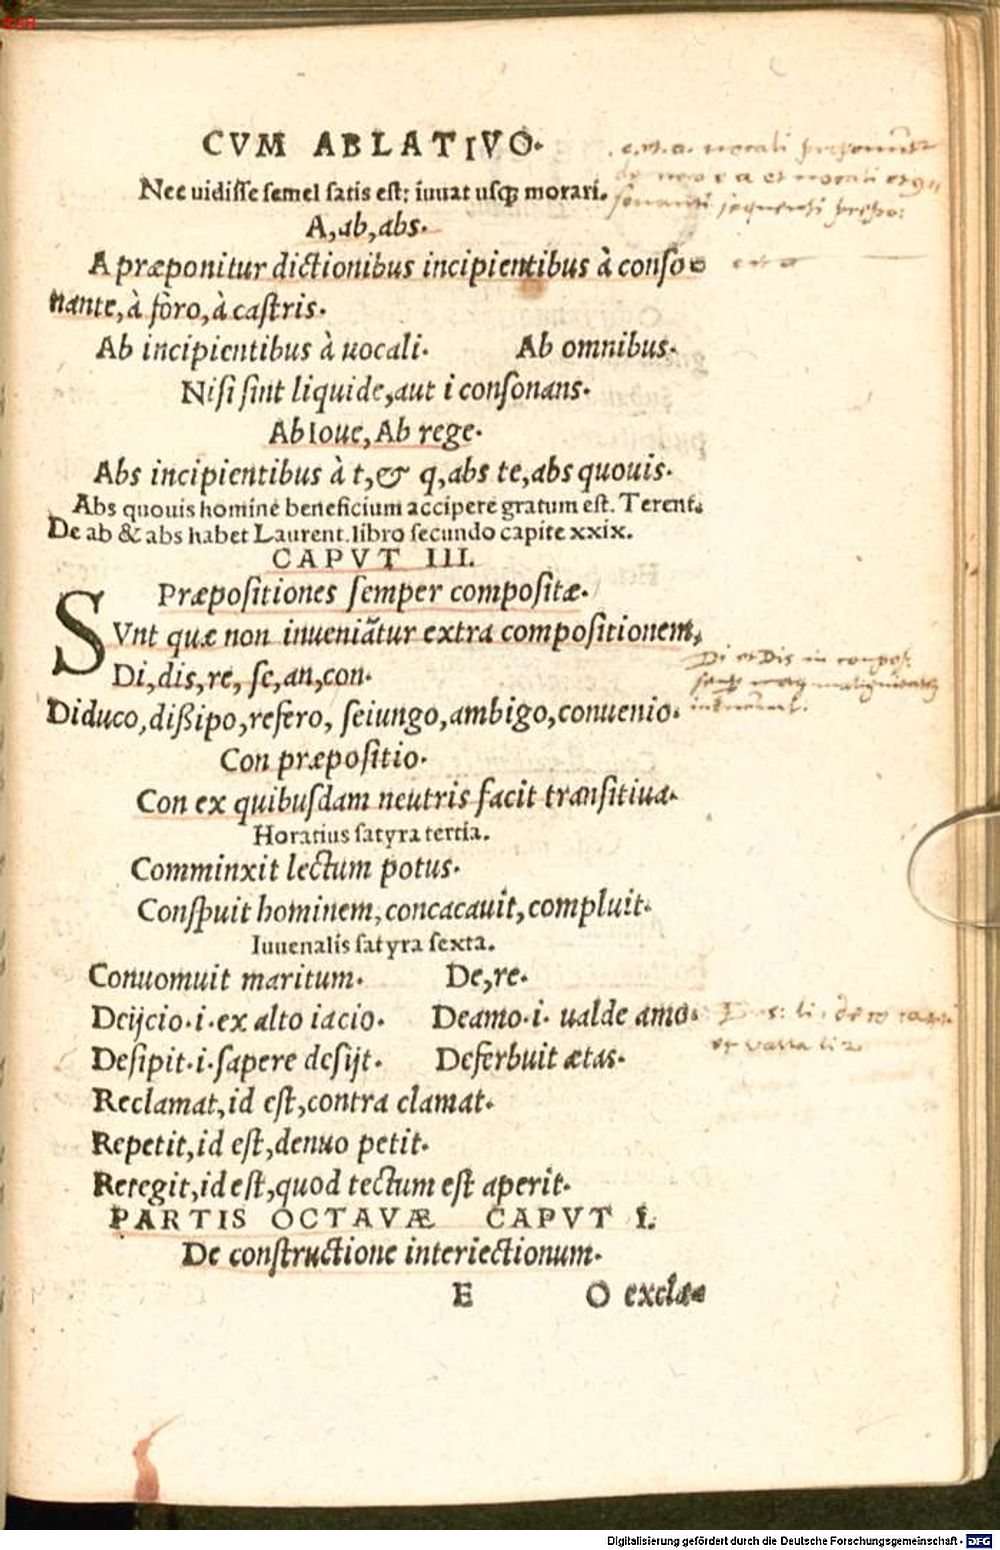 CVM ABLATIVO.
Nec uidisse semel satis est: iuuat usq; morari.
A, ab, abs.
A præponitur dictionibus incipientibus à conso-
nante, à foro, à castris.
Ab incipientibus à uocali. Ab omnibus.
Nisi sint liquide, aut i consonans.
Ab Ioue, Ab rege.
Abs incipientibus à t, & q, abs te, abs quouis.
Abs quouis homine beneficium accipere gratum est. Terent.
De ab & abs habet Laurent. libro secundo capite xxix.
CAPVT III.
Præpositiones semper compositæ.
SVnt quæ non inueniātur extra compositionem,
Di, dis, re, se, an, con.
Diduco, dißipo, refero, seiungo, ambigo, conuenio.
Con præpositio.
Con ex quibusdam neutris facit transitiua.
Horatius satyra tertia.
Comminxit lectum potus.
Conspuit hominem, concacauit, compluit.
Iuuenalis satyra sexta.
Conuomuit maritum. De, re.
Deijcio.i.ex alto iacio. Deamo.i. ualde amo.
Desipit.i.sapere desijt. Deferbuit ætas.
Reclamat, id est, contra clamat.
Repetit, id est, denuo petit.
Retegit, id est, quod tectum est aperit.
PARTIS OCTAVÆ CAPVT I.
De constructione interiectionum.
E O excla-
Di et Dis in
Digitalisierung gefördert durch die Deutsche Forschungsgemeinschaft - DFG